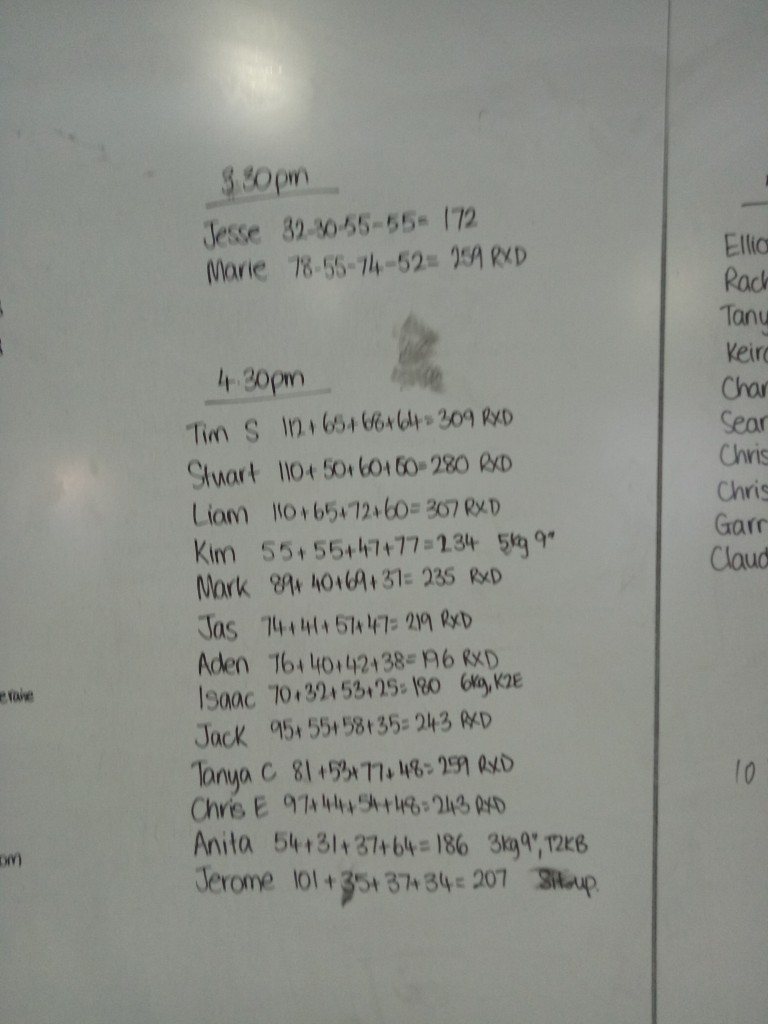 3.30pm
Jesse 32-30-55-55= 172
Marie 78-55-74-52= 259 RXD
4.30pm
Tim S 112+65+68+64=309 RXD
Stuart 110+50+60+60=280 RXD
Liam 110+65+72+60=307 RXD
Kim 55+55+47+77=234 5kg 9"
Mark 89+40+69+37= 235 RXD
Jas 74+41+57+47= 219 RXD
Aden 76+40+42+38=196 RXD
Isaac 70+32+53+25=180 6kg, K2E
Jack 95+55+58+35= 243 RXD
Tanya C 81+53+77+48=259 RXD
Chris E 97+44+54+48=243 RXD
Anita 54+31+37+64=186 3kg 9", T2KB
Jerome 101+35+37+34=207 Situp.
Ellio
Rach
Tany
Keira
Char
Sean
Chris
Chris
Garr
Claud
10